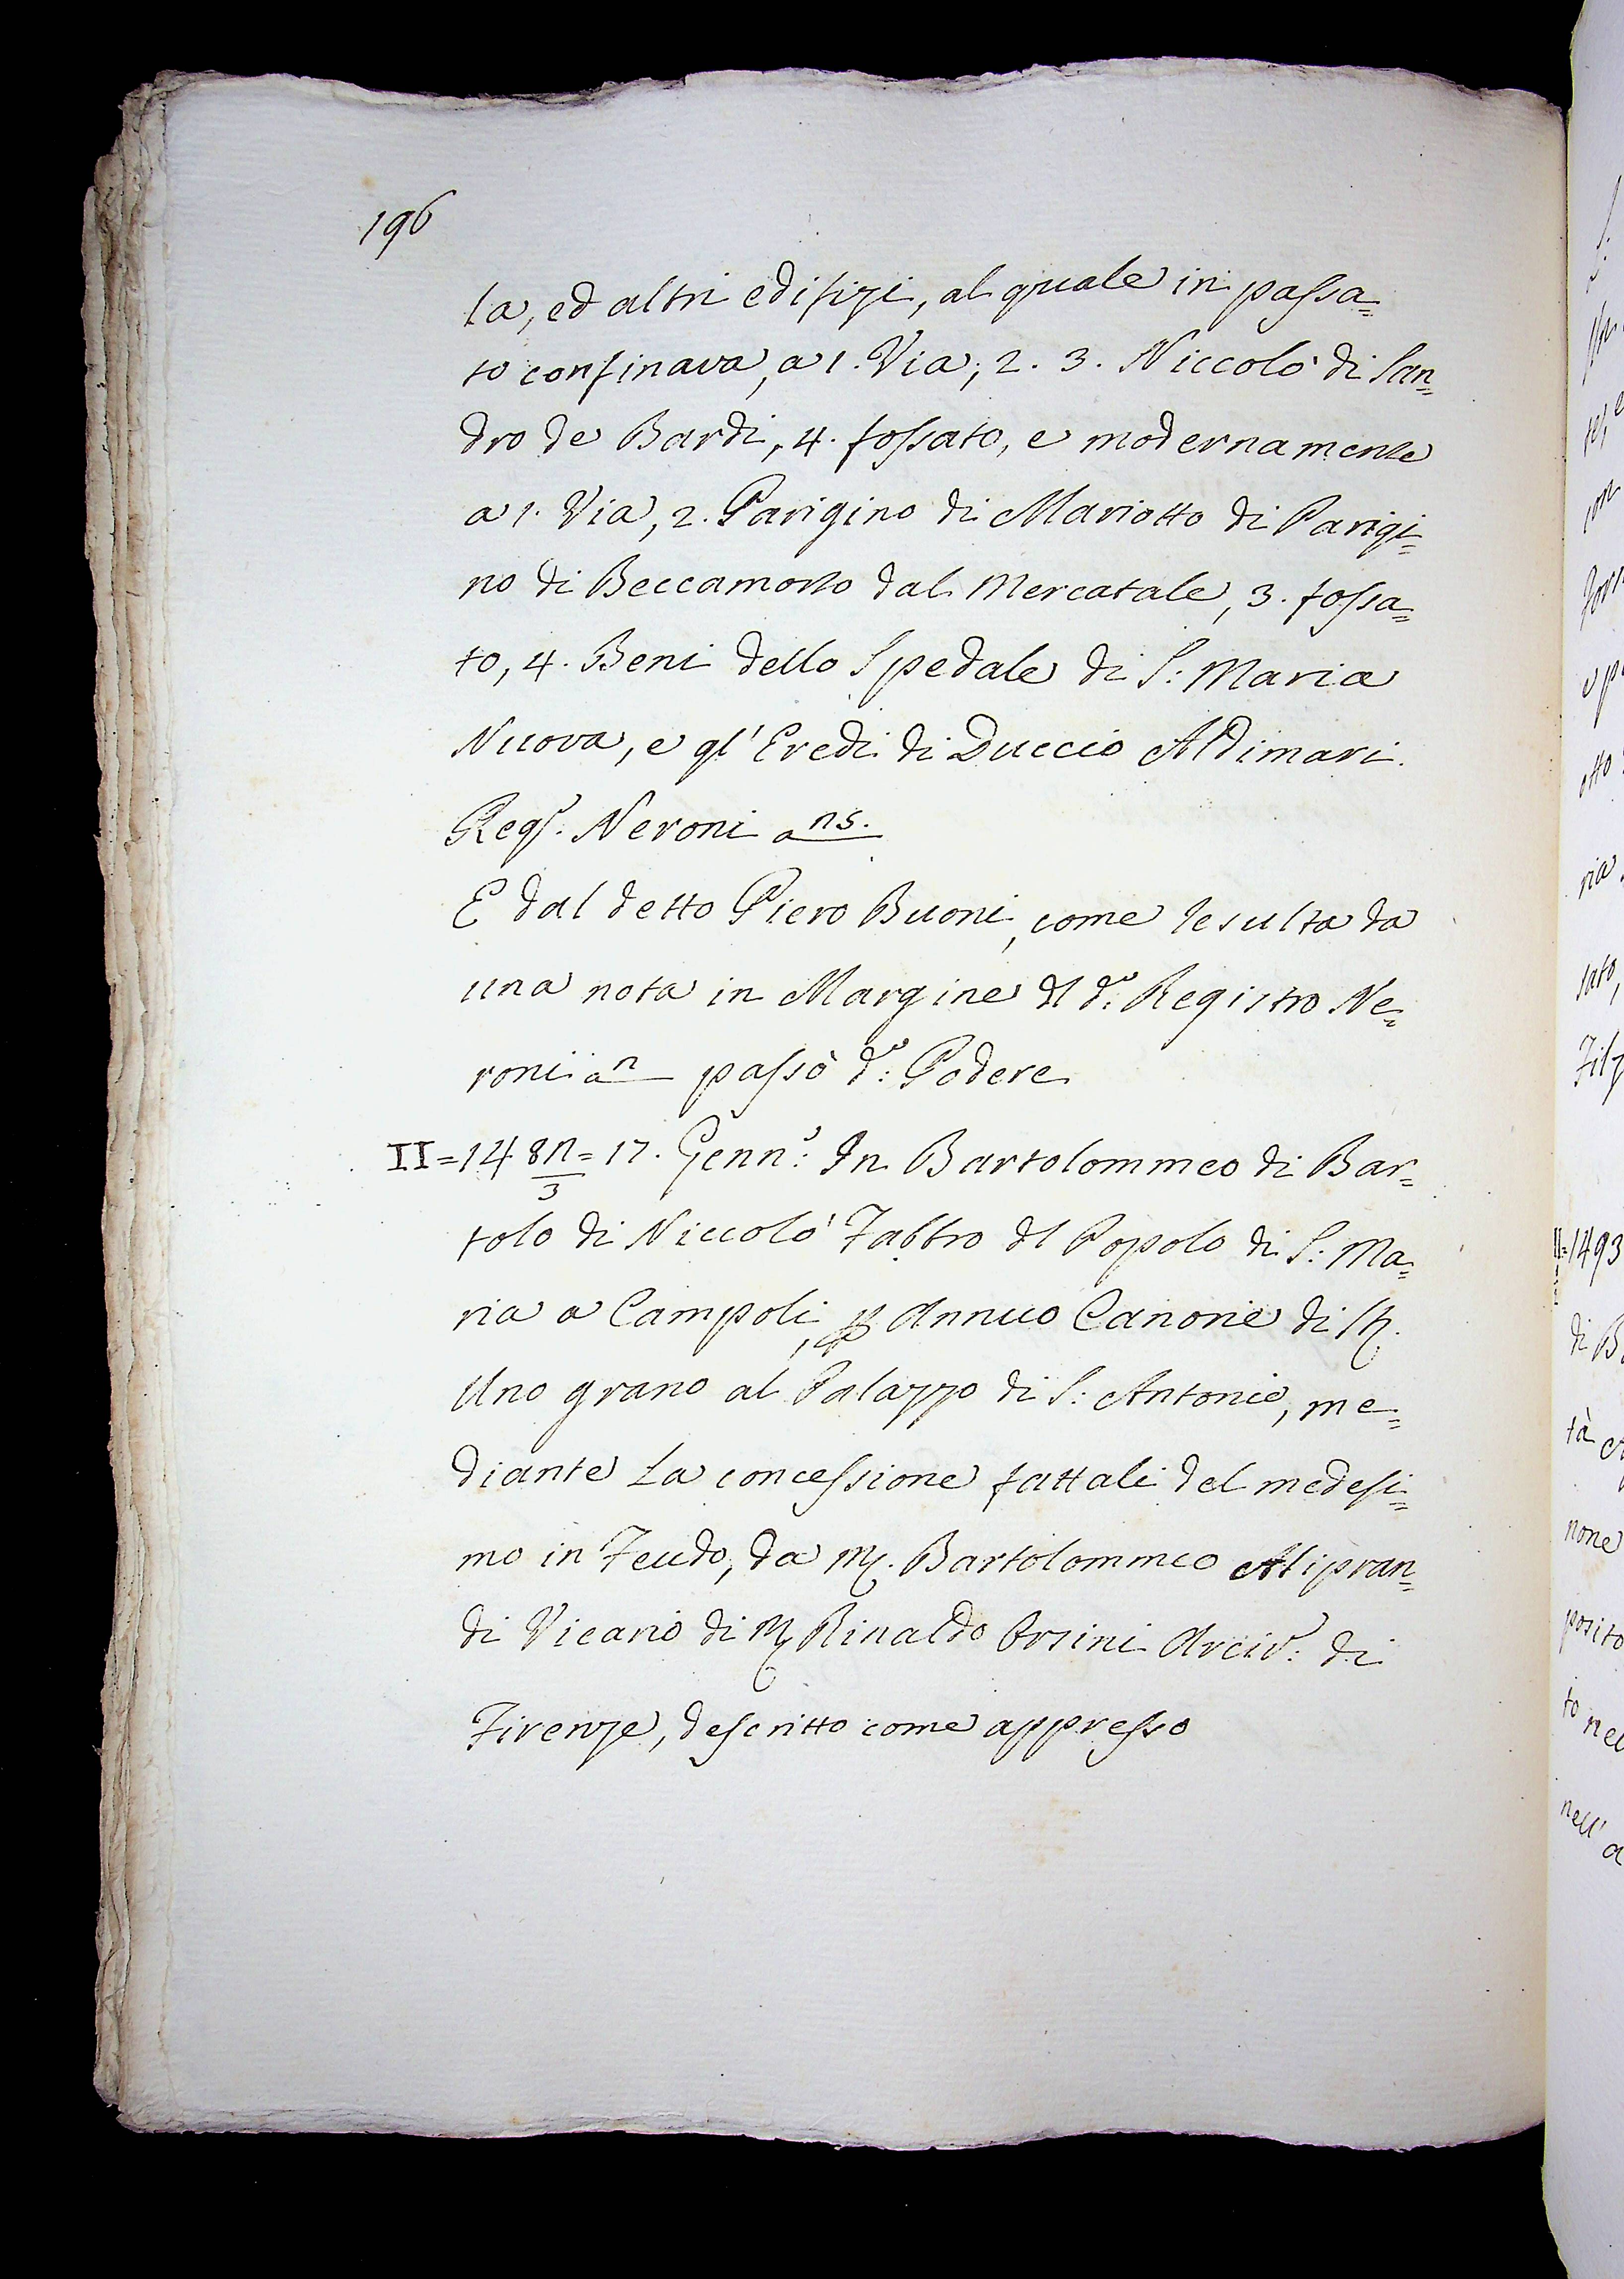 196
la, ed altri edifizi, al quale in passa=
to confinava, a 1. Via, 2. 3. Niccolò di San=
dro de Bardi, 4. fossato, e modernamente
a 1. Via, 2. Parigino di Mariotto di Parigi=
no di Beccamorto dal Mercatale, 3. fossa=
to, 4. Beni dello Spedale di S: Maria
Nuova, e gl' Eredi di Duccio Aldimari.
Reg.º Neroni a ns.
E dal detto Piero Buoni, come resulta da
una nota in Margine dl dº: Registro Ne=
roni a n passò dº: Podere
II = 148 = 17. Gennº: In Bartolommeo di Bar=
tolo di Niccolò Fabbro dl Popolo di S: Ma=
ria a Campoli, p Annuo Canone di
Uno grano al Palazzo di S: Antonio, me=
diante la concessione fattali del medesi=
mo in Feudo, da M. Bartolommeo Alipran=
di Vicario di M Rinaldo Orsini Arcivº: di
Firenze, descritto come appresso
II=1493
di B
tà
none
posito
to nel
nell' a